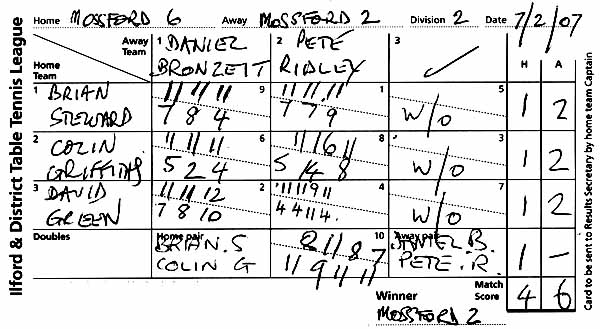 Ilford & District Table Tennis League
Home MOSSFORD 6 Away MOSSFORD 2 Division 2 Date 7/2/07
Away Team 1 DANIEL BRONZETT 2 PETE RIDLEY 3 H A
Home Team
1 BRIAN STEWARD 11 11 11 9 11 11 11 1 W/O 5 1 2
7 8 4 7 7 9
2 COLIN GRIFFITHS 11 11 11 6 11 16 11 8 W/O 3 1 2
5 2 4 5 14 8
3 DAVID GREEN 11 11 12 2 11 11 9 11 4 W/O 7 1 2
7 8 10 4 4 11 4
Doubles Home pair BRIAN. S 8 11 8 7 10 Away pair DANIEL B. 1 -
COLIN G 11 9 11 11 PETE. R.
Match Score 4 6
Winner MOSSFORD 2
Card to be sent to Results Secretary by home team Captain